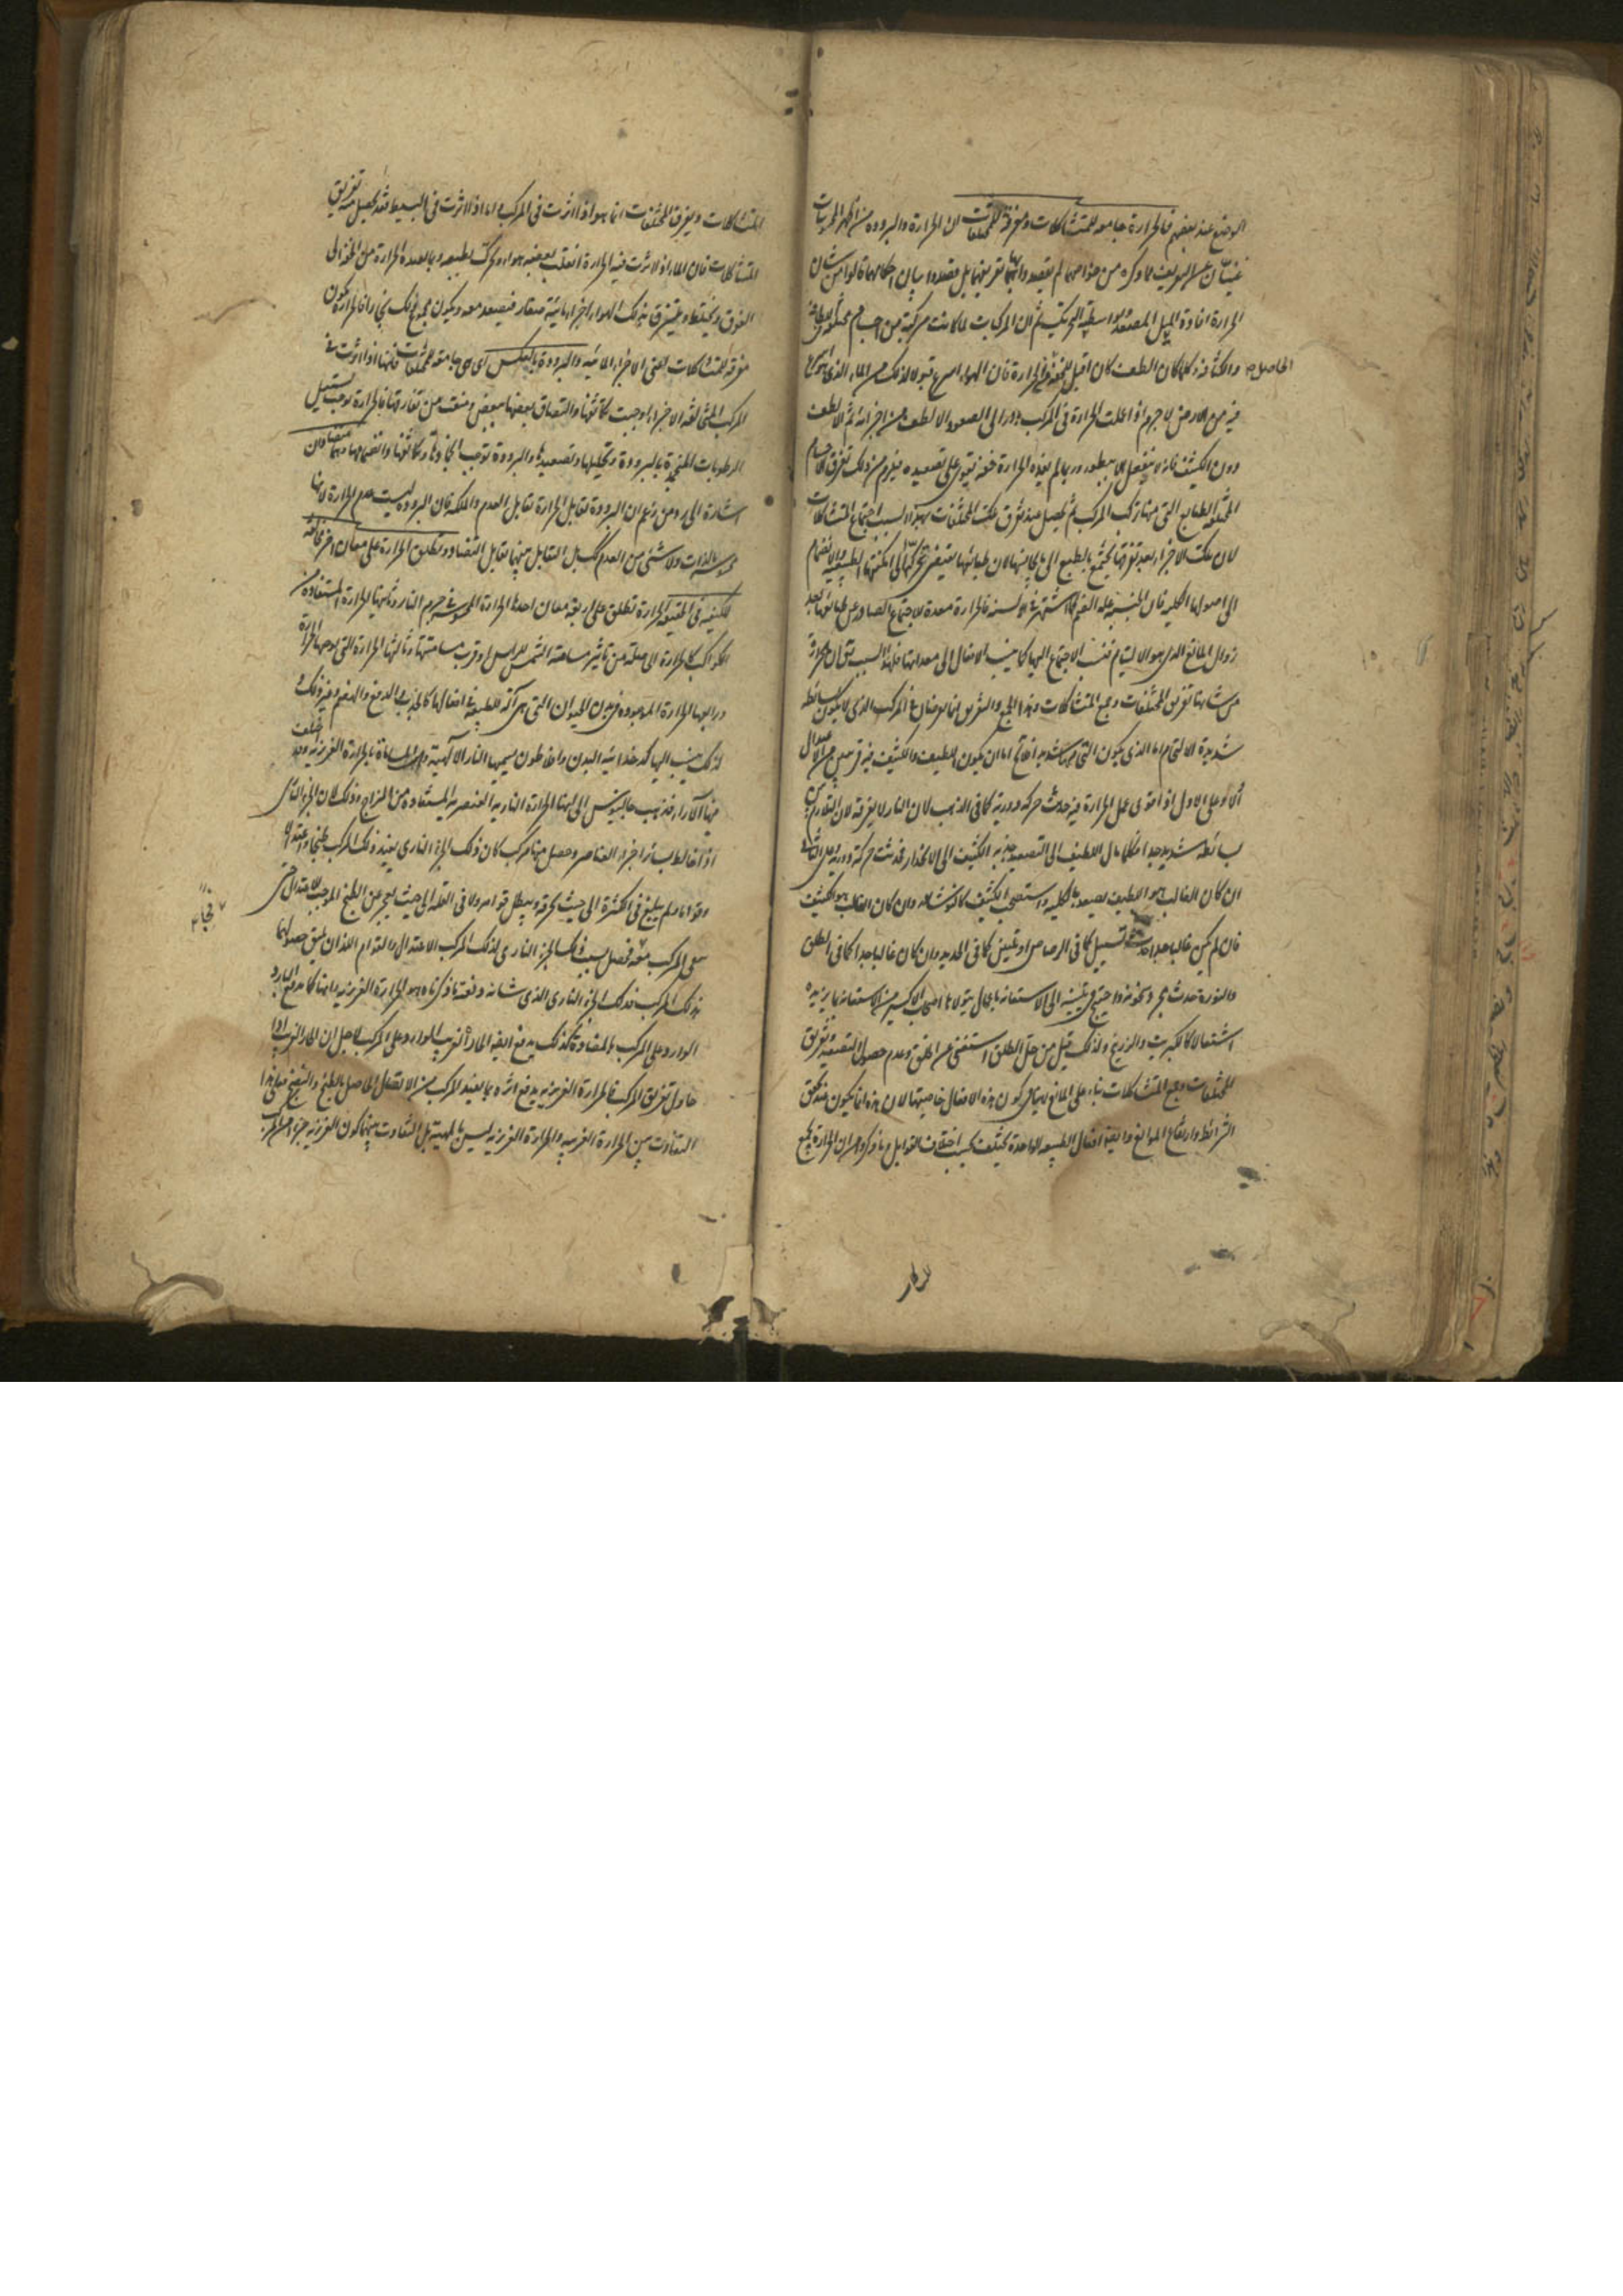 الوضع عند بعضهم فالحرارة جامعة للمتشاكلات ومفرقة للمختلفات لان الحرارة والبرودة من اظهر المحسوسات
غنيتان عن التعريف وما ذكره من خواصهما لم يقصدوا بهما تعريفهما بل قصدوا بيان احكامهما قالوا من شان
الحرارة افادة الميل المصعد بواسطة التحريك ثم ان المركبات لما كانت مركبة من اجسام مختلفة في اللطافة
والكثافة وكلما كان الطف كان اقبل للخفة من الحرارة فان الهواء اسرع قبولا لذلك من الماء الذي هو اسرع
الحاصل
فيه من الارض لا جرم اذا عملت الحرارة في المركب بادر الى الصعود الالطف من اجزائه ثم الالطف
دون الكثيف فانه لا ينفعل الا ببطوء وربما لم يفده الحرارة خفة تقوى على تصعيده فيلزم من ذلك تفرق الاجسام
المختلفة الطبايع التي منها تركب المركب ثم يحصل عند تفرق تلك المختلفات بسبب اجتماع المتشاكلات
لان تلك الاجزاء بعد تفرقها يجتمع بالطبع الى ما يجانسها لان طبائعها يقتضي تحركها الى امكنتها الطبيعية والانضمام
الى اصولها الكلية فان الجنسية علة الضم كما اشتهر في الالسنة فالحرارة معدة للاجتماع الصادر عن طبائعها بعد
زوال المانع الذي هو الالتيام فنسب الاجتماع اليها كما ينسب الافعال الى معداتها فلهذا السبب
من شانها تفريق المختلفات وجمع المتشاكلات وهذا الجمع والتفريق انما يعرضان في المركب الذي لا يكون بسائطه
شديدة الالتيام واما الذي يكون التيامها شديدا فاما ان يكون اللطيف والكثيف فيه قريبين من الاعتدال
او لا وعلى الاول اذا قوى عمل الحرارة فيه حدث حركة دورية كما في الذهب لان النار لا يفرقه لان التلازم بين
بسائطه شديد جدا فكلما مال اللطيف الى التصعيد جذبه الكثيف الى الانحدار فحدثت حركة دورية وعلى الثاني
ان كان الغالب هو اللطيف يصعد بالكلية واستصحب الكثيف كالنوشادر وان كان الغالب هو الكثيف
فان لم يكن غالبا جدا حدث تسييل كما في الرصاص او تليين كما في الحديد وان كان غالبا جدا كما في الطلق
والنورة حدث مجرد سخونة واحتيج في تليينه الى الاستعانة باعمال يتولاها اصحاب الاكسير من الاستعانة بما يزيده
اشتعالا كالكبريت والزرنيخ ولذلك قيل من حل الطلق استغنى عن الخلق وعدم حصول التصعيد وتفريق
المختلفات وجمع المتشاكلات بناء على المانع لا ينافي كون هذه الافعال خاصيتها لان هذه انما يكون عند تحقق
الشرائط وارتفاع الموانع وايضا افعال الطبيعة الواحدة يختلف بحسب اختلاف القوابل وما ذكروه من ان الحرارة يجمع
المتشاكلات ويفرق المختلفات انما هو اذا اثرت في المركب واما اذا اثرت في البسيط فقد يحصل منه تفريق
المتشاكلات فان الماء اذا اثرت فيه الحرارة انقلب بعضه هواء وتحرك بطبعه وبما يفيده الحرارة من الخفة الى
الفوق ويختلط ويلتزق بذلك الهواء اجزاء مائية صغار فيصعد معه ويكون مجموع ذلك بخارا فالحرارة يكون
مفرقة للمتشاكلات اعني الاجزاء المائية والبرودة بالعكس اي هي جامعة للمختلفات فانها اذا اثرت في
المركب المتخالفة الاجزاء اوجبت تكاثفها والتصاق بعضها ببعض ومنعت من تفارقها فالحرارة توجب تسييل
الرطوبات المنجمدة بالبرودة وتحليلها وتصعيدها والبرودة توجب انجمادها وتكاثفها وانضمامها وهما متضادان
اشارة الى رد من زعم ان البرودة تقابل الحرارة تقابل العدم والملكة فان البرودة ليست عدم الحرارة لانها
محسوسة بالذات ولا شيء من العدم كذلك بل التقابل بينهما تقابل التضاد ويطلق الحرارة على معان اخر مخالفة
للكيفية في الحقيقة الحرارة تطلق على اربعة معان احدها الحرارة المحسوسة في جرم النار وثانيها الحرارة المستفادة من
الكواكب كالحرارة الحاصلة من تاثير مسامتة الشمس للراس او قرب مسامتتها وثالثها الحرارة التي يوجبها الحركة
ورابعها الحرارة الموجودة في بدن الحيوان التي هي آلة للطبيعة في افعالها كالجذب والدفع والهضم وغير ذلك و
لذلك ينسب اليها كدخدائية البدن وافلاطون يسميها النار الالهية والحكماء بالحرارة الغريزية وقد اختلف
فيها الآراء فذهب جالينوس الى انها الحرارة النارية العنصرية المستفادة من المزاج وذلك لان الجزء الناري
اذا خالط سائر اجزاء العناصر وحصل منها مركب كان ذلك الجزء الناري يفيد ذلك المركب طبخا واعتدالا
وقواما ولم يبلغ في الكثرة الى حيث يحرقه ويبطل قوامه ولا في القلة الى حيث يعجز عن الطبخ الموجب للاعتدال حتى
بقي المركب معه فحصل بسبب ذلك الجزء الناري لذلك المركب الاعتدال والقوام اللذان يليق حصولهما
فجا
بذلك المركب فذلك الجزء الناري الذي شانه ونفعه ما ذكرناه هو الحرارة الغريزية وانها كما يدفع البارد
الوارد على المركب بالمضادة كذلك يدفع ايضا الحار الغريب الوارد على المركب لاجل ان الحار الغريب اذا
حاول تفريق المركب فالحرارة الغريزية يدفع اثره بما يفيد المركب من الاتصال الحاصل بالطبخ والنضج فعلى هذا
التفاوت بين الحرارة الغريبة والحرارة الغريزية ليس بالمهية بل التفاوت بينهما كون الغريزية جزءا من المركب